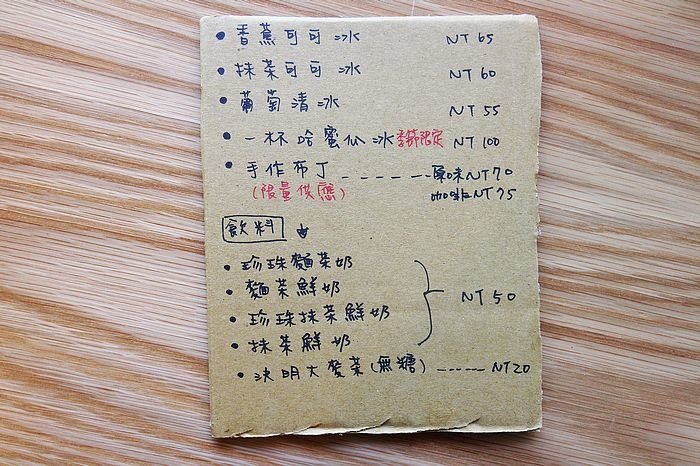 • 香蕉可可冰 NT 65
• 抹茶可可冰 NT 60
• 葡萄清冰 NT 55
• 一杯哈蜜瓜冰 季節限定 NT 100
• 手作布丁 ------- 原味NT70
(限量供應) 咖啡NT75
飲料
• 珍珠麵茶奶
• 麵茶鮮奶
• 珍珠抹茶鮮奶 NT 50
• 抹茶鮮奶
• 決明大麥茶(無糖) ------ NT20